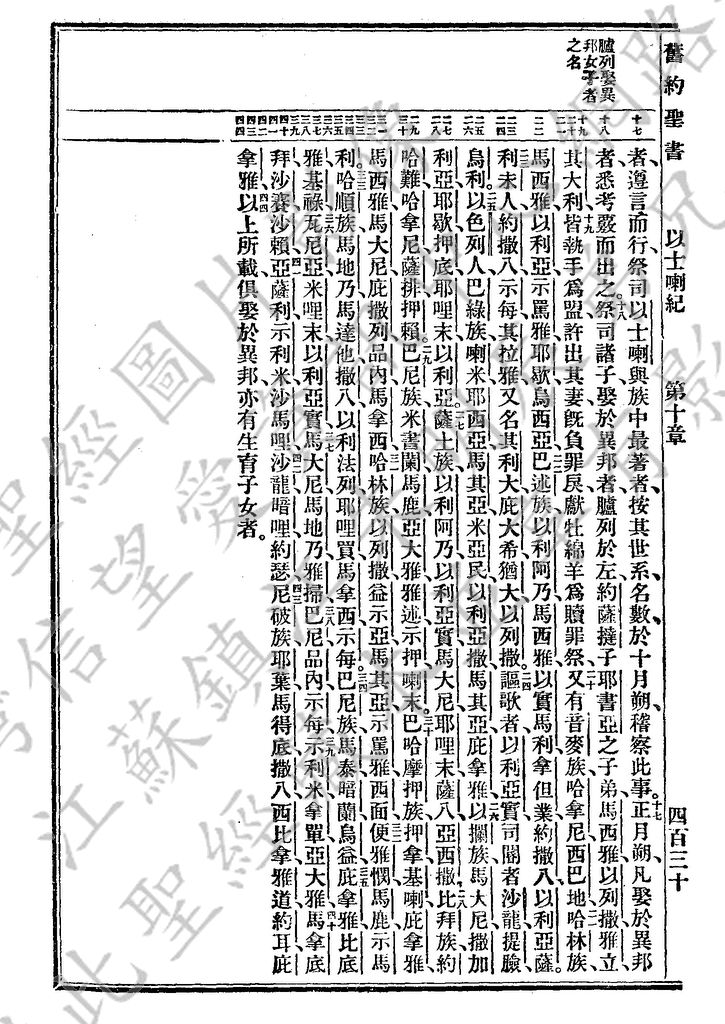 舊約聖書 以士喇紀 第十章 四百三十
臚列娶異
邦女子者
之名
十七
十八
十九
二十
二一
二二
二三
二四
二五
二六
二七
二八
二九
三十
三一
三二
三三
三四
三五
三六
三七
三八
三九
四十
四一
四二
四三
四四
者遵言而行祭司以士喇與族中最著者按其世系名數於十月朔稽察此事。十七正月朔凡娶於異邦
者悉考覈而出之。十八祭司諸子娶於異邦者臚列於左約薩撻子耶書亞之子弟馬西雅以列撒雅立
其大利十九皆執手爲盟許出其妻旣負罪戾獻牡綿羊爲贖罪祭二十又有音麥族哈拿尼西巴地二一哈林族
馬西雅以利亞示罵雅耶歇烏西亞二二巴述族以利阿乃馬西雅以實馬利拿但業約撒八以利亞薩。
二三利未人約撒八示每其拉雅又名其利大庇大希猶大以列撒。二四謳歌者以利亞實司閽者沙龍提臉
烏利二五以色列人巴綠族喇米耶西亞馬其亞米亞民以利亞撒馬其亞庇拿雅二六以攔族馬大尼撒加
利亞耶歇押底耶哩末以利亞。二七薩土族以利阿乃以利亞實馬大尼耶哩末薩八亞西撒二八比拜族約
哈難哈拿尼薩排押賴。二九巴尼族米書闌馬鹿亞大雅雅述示押喇末。三十巴哈摩押族押拿基喇庇拿雅
馬西雅馬大尼庇撒列品內馬拿西三一哈林族以列撒益示亞馬其亞示罵雅西面三二便雅憫馬鹿示馬
利三三哈順族馬地乃馬達他撒八以利法列耶哩買馬拿西示每。三四巴尼族馬泰暗蘭烏益三五庇拿雅比底
雅基祿三六瓦尼亞米哩末以利亞實三七馬大尼馬地乃雅掃三八巴尼品內示每三九示利米拿單亞大雅四十馬拿底
拜沙賽沙賴四一亞薩利示利米沙馬哩四二沙龍暗哩約瑟四三尼破族耶葉馬得底撒八西比拿雅道約耳庇
拿雅四四以上所載俱娶於異邦亦有生育子女者。